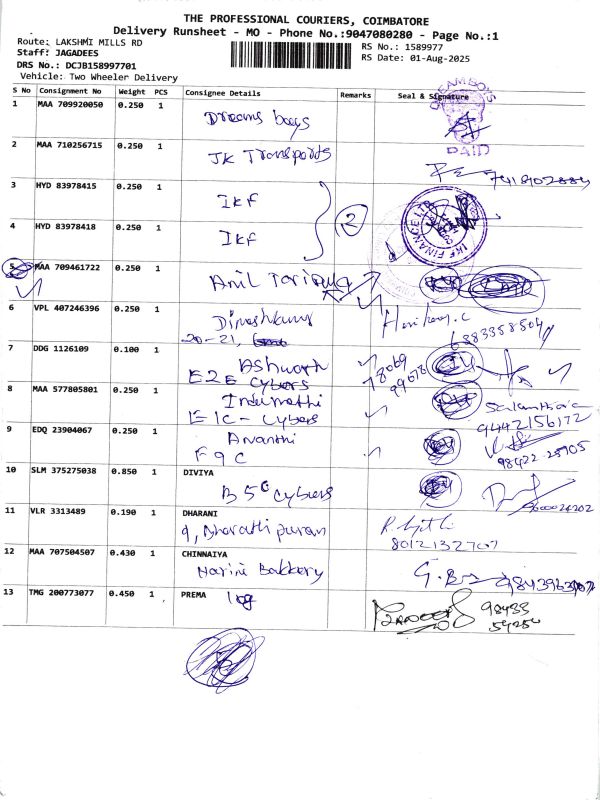 THE PROFESSIONAL COURIERS, COIMBATORE
Delivery Runsheet - MO - Phone No.:9047080280 - Page No.:1
Route: LAKSHMI MILLS RD
Staff: JAGADEES
DRS No.: DCJB158997701
Vehicle: Two Wheeler Delivery
RS No.: 1589977
RS Date: 01-Aug-2025
S No Consignment No Weight PCS Consignee Details Remarks Seal & Signature
1 MAA 709920050 0.250 1 Dreams boys DREAMBOYS PAID
2 MAA 710256715 0.250 1 JK Transports
3 HYD 83978415 0.250 1 IKF
2
4 HYD 83978418 0.250 1 IKF IKF FINANCE LTD
5 MAA 709461722 0.250 1 Anil
6 VPL 407246396 0.250 1
20-21,
7 DDG 1126109 0.100 1 Ashwath
E2E Cybers
8 MAA 577805801 0.250 1 Indumathi
E1C - Cybers 9442156172
9 EDQ 23904067 0.250 1 Ananthi
F9C
10 SLM 375275038 0.850 1 DIVIYA
Cybers
11 VLR 3313489 0.190 1 DHARANI
9, Bharathi puram 8012132707
12 MAA 707504507 0.430 1 CHINNAIYA
Harini Bakkery
13 TMG 200773077 0.450 1 PREMA